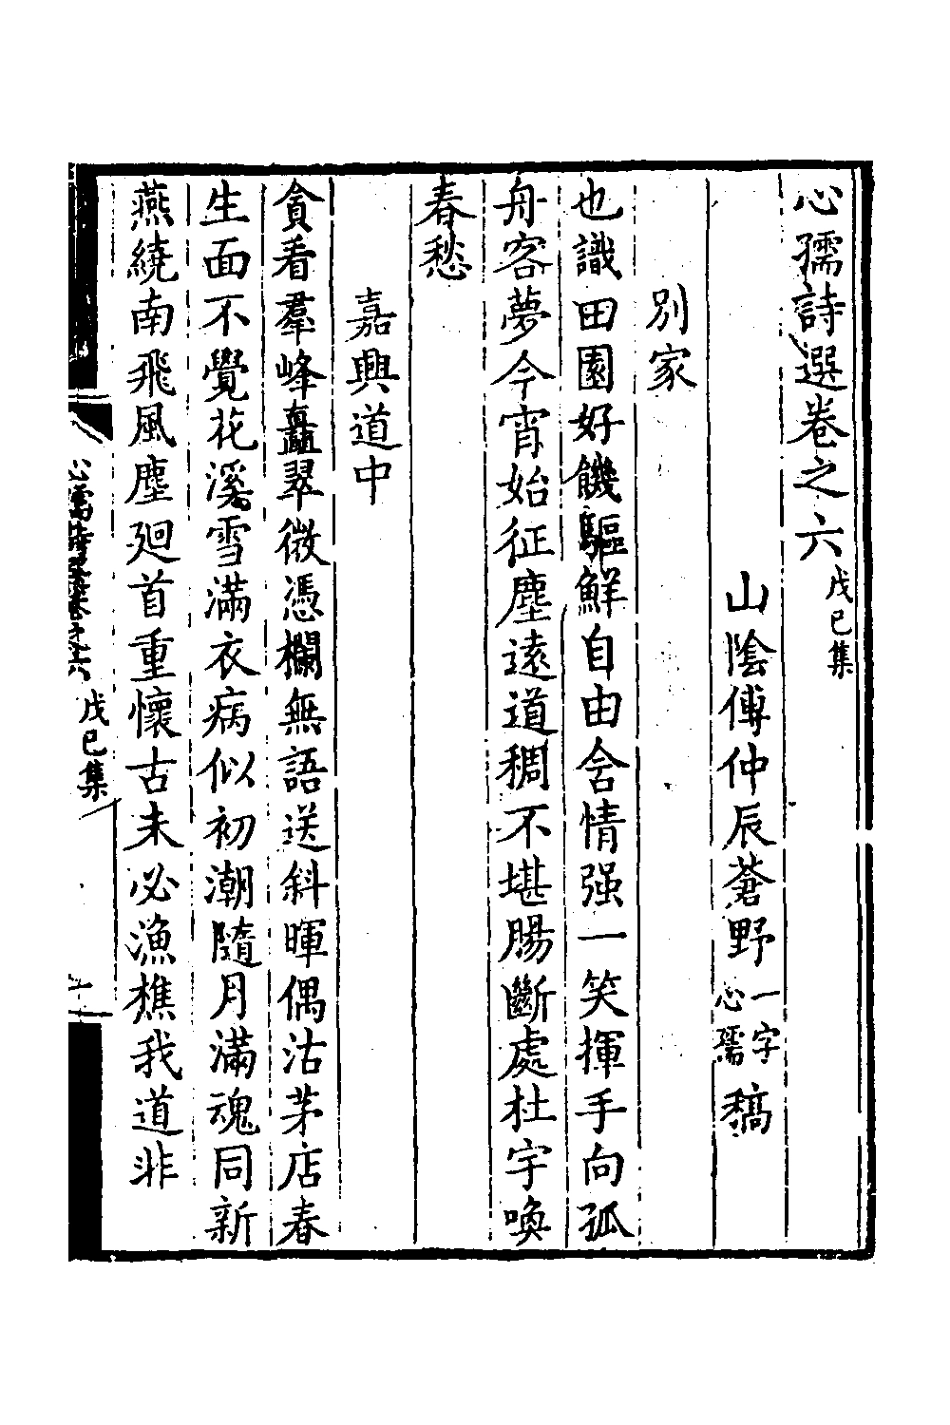 心孺詩選卷之六戊己集
山陰傅仲辰蒼野一字心孺稿
別家
也識田園好饑驅鮮自由含情强一笑揮手向孤
舟客夢今宵始征塵遠道稠不堪腸斷處杜宇喚
春愁
嘉興道中
貪看羣峰矗翠微憑欄無語送斜暉偶沽茅店春
生面不覺花溪雪滿衣病似初潮隨月滿魂同新
燕繞南飛風塵廻首重懷古未必漁樵我道非
心孺詩選卷之六 戊己集
一